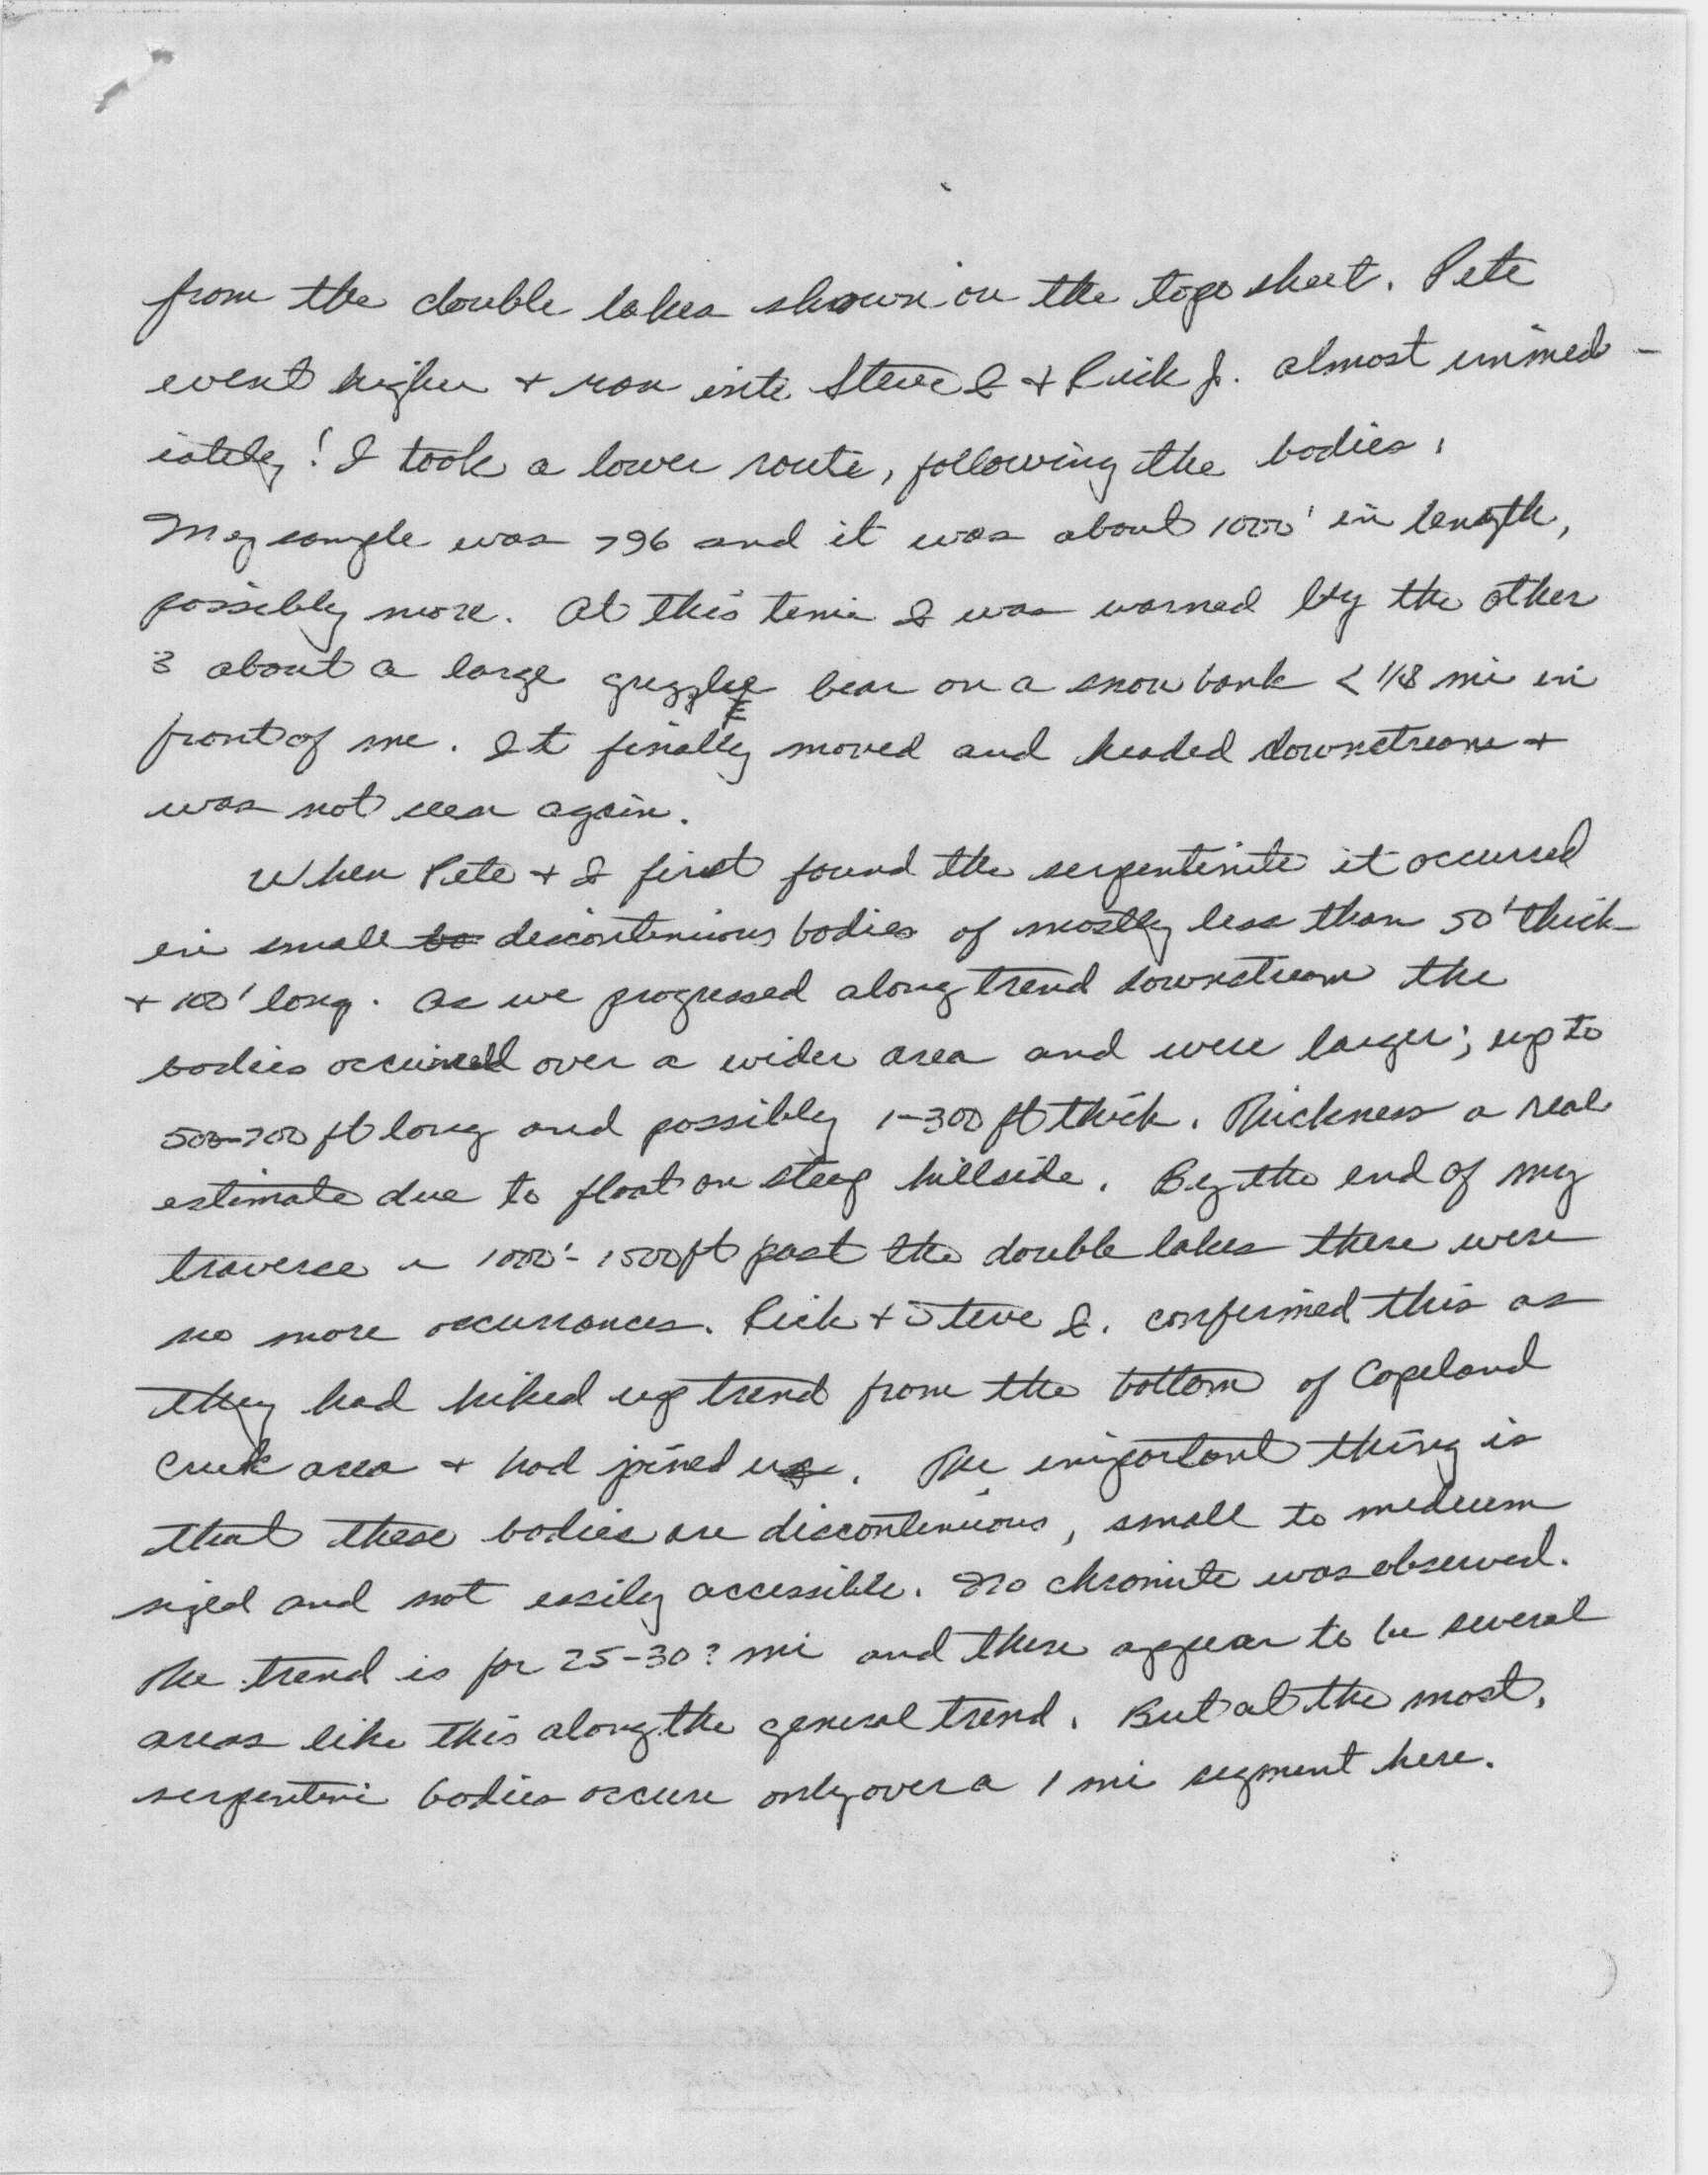 from the double lakes shown on the topo sheet. Pete
went higher + ran into Steve I + Rick Jr. almost immed-
iately! I took a lower route, following the bodies.
My sample was 796 and it was about 1000' in length,
possibly more. At this time I was warned by the other
3 about a large grizzly bear on a snow bank < 1/8 mi in
front of me. It finally moved and headed downstream +
was not seen again.
When Pete + I first found the serpentinite it occurred
in small bo discontinuous bodies of mostly less than 50' thick
+ 100' long. As we progressed along trend downstream the
bodies occurred over a wider area and were larger; up to
500-700 ft long and possibly 1-300 ft thick. Thickness a real
estimate due to float on steep hillside. By the end of my
traverse ~ 1000'-1500 ft past the double lakes there were
no more occurrances. Rick + Steve I. confirmed this as
they had hiked up trend from the bottom of Copeland
Creek area + had joined us. The important thing is
that these bodies are discontinuous, small to medium
sized and not easily accessible. No chromite was observed.
The trend is for 25-30? mi and there appear to be several
areas like this along the general trend. But at the most,
serpentine bodies occure only over a 1 mi segment here.